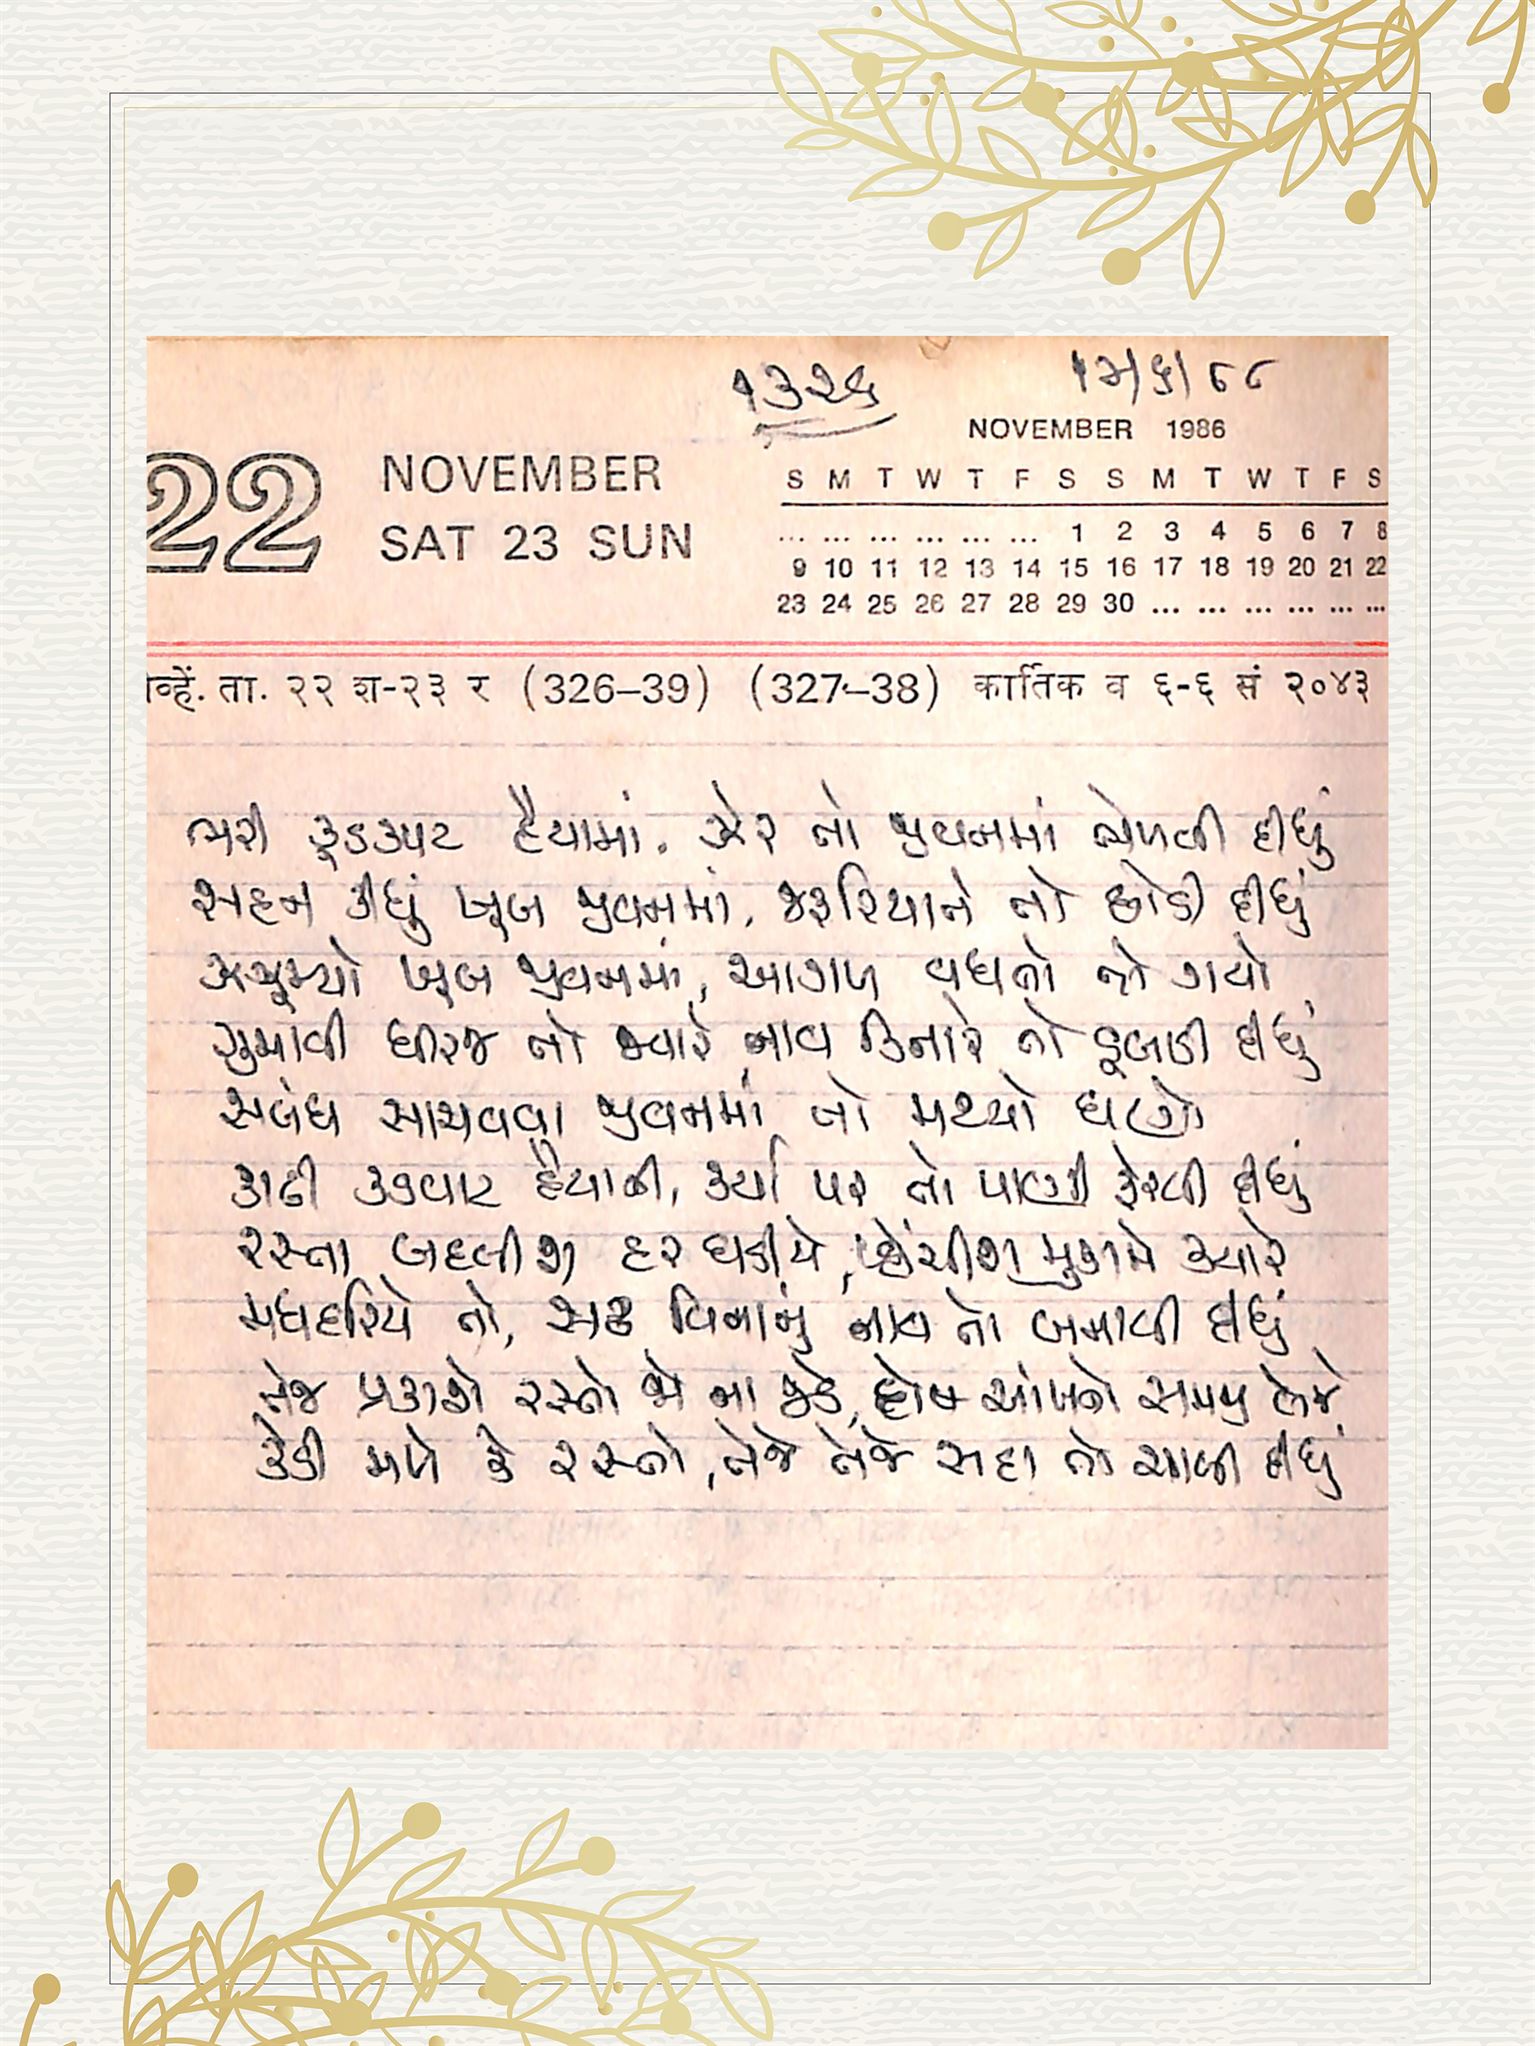 ૧૩૨૬
૧૩/૬/૮૮
NOVEMBER 1986
22 NOVEMBER
SAT 23 SUN
S M T W T F S S M T W T F S
... ... ... ... ... ... 1 2 3 4 5 6 7 8
9 10 11 12 13 14 15 16 17 18 19 20 21 22
23 24 25 26 27 28 29 30 ... ... ... ... ... ...
व्हें. ता. २२ श-२३ र (326–39) (327–38) कार्तिक व ६-६ सं २०४३
ભરી કૂડકપટ હૈયામાં, ઝેર તો જીવનમાં ભેળવી દીધું
સહન કીધું ખૂબ જીવનમાં, જરૂરિયાતે તો છોડી દીધું
ઝઝૂમ્યો ખૂબ જીવનમાં, આગળ વધતો તો ગયો
ગુમાવી ધીરજ તો જ્યારે, નાવ કિનારે તો ડૂબાડી દીધું
સબંધ સાચવવા જીવનમાં તો મથ્યો ઘણો
કાઢી કડવાટ હૈયાની, કર્યા પર તો પાણી ફેરવી દીધું
રસ્તા બદલીશ હર ઘડીયે, પહોંચીશ મુકામે ક્યારે
મધદરિયે તો, સઢ વિનાનું નાવ તો બનાવી દીધું
તેજ પ્રકાશે રસ્તો જો ના જડે, દોષ આંખનો સમજી લેજે
કેડી મળે કે રસ્તો, તેજે તેજે સદા તો ચાલી દીધું